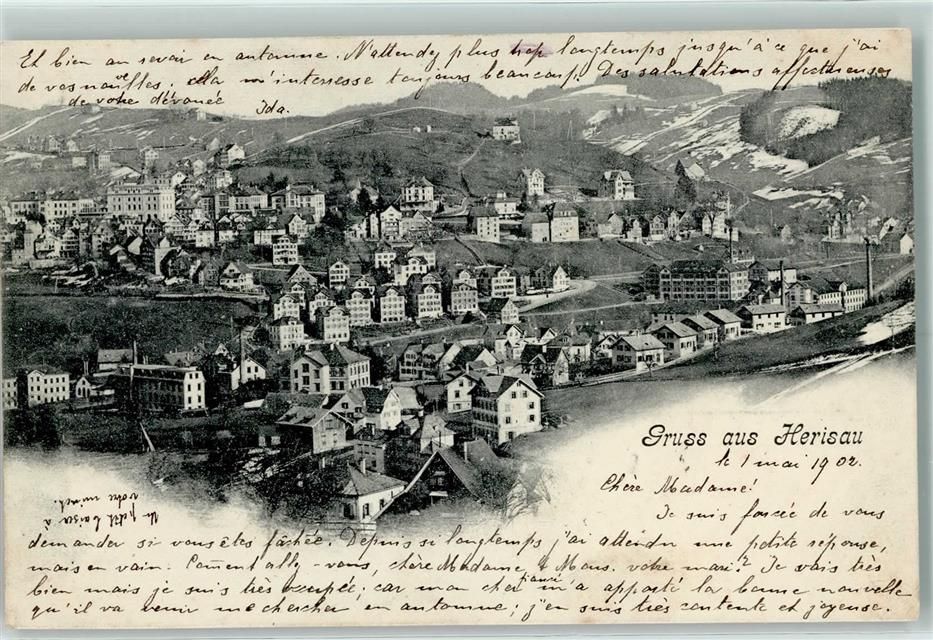 Gruss aus Herisau
le 1 mai 1902.
Chère Madame!
Je suis forcée de vous
demander si vous êtes fâchée. Depuis si longtemps j'ai attendu une petite réponse,
mais en vain. Coment allez-vous, chère Madame, & Mons. votre mari? Je vais très
bien mais je suis très occupée; car mon cher fiancé m'a apporté la bonne nouvelle
qu'il va venir me chercher en automne; j'en suis très contente et joyeuse.
Et bien au revoir en automne. N'attendez plus trop longtemps jusqu'à ce que j'ai
de vos nouvelles; ella m'interresse toujours beaucoup! Des salutations affectueuses
de votre dévouée Ida.
Un petit baiser à
votre